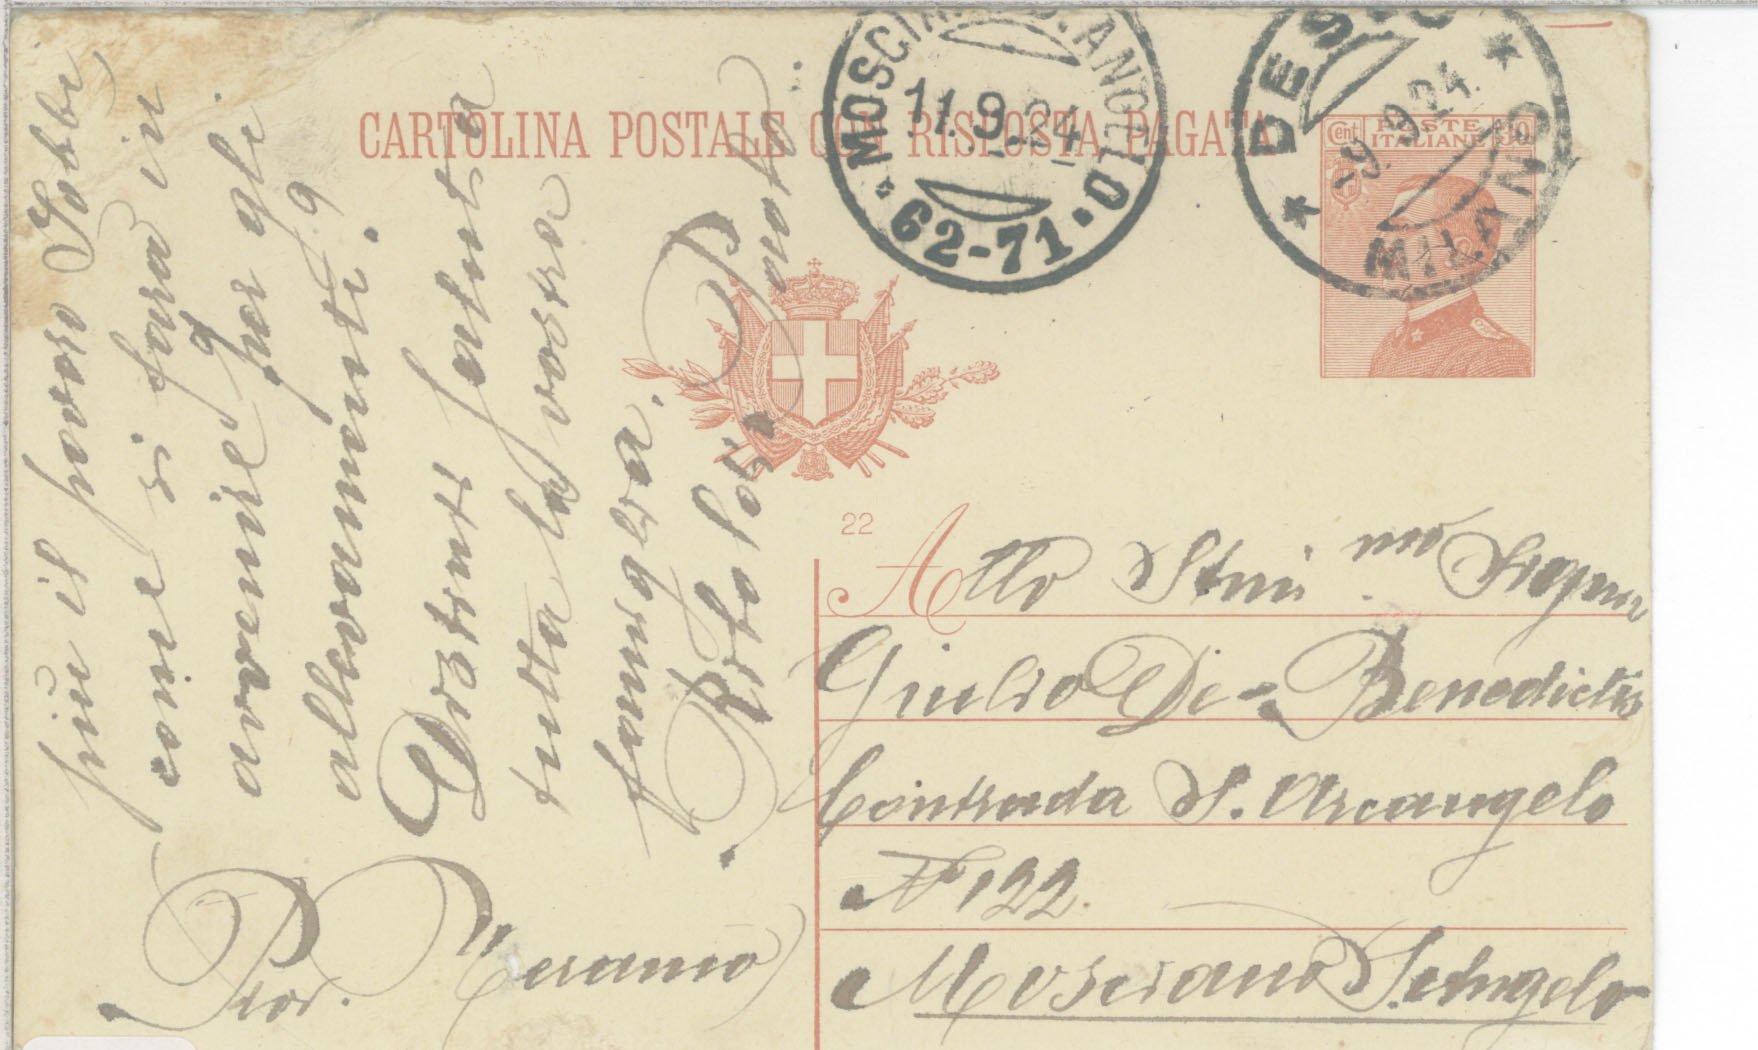 CARTOLINA POSTALE CON RISPOSTA PAGATA
11.9.24
62-71
DESIO
-9.9.24
MILANO
Cent POSTE 30
ITALIANE
22
Allo Stim.mo Signor
Giulio De-Benedictis
Contrada S. Arcangelo
N 122.
Mosciano S. Angelo
Prov. Teramo
più il povero
come si farà in
avvenire per gli
allevamenti?
Distinti saluti a
tutta la vostra
famiglia.